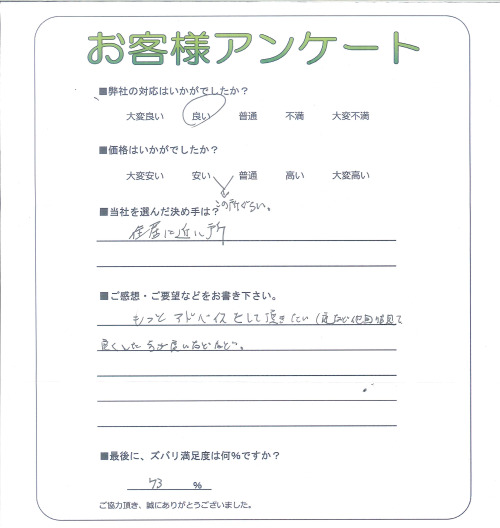 お客様アンケート
■弊社の対応はいかがでしたか?
大変良い 良い 普通 不満 大変不満
■価格はいかがでしたか?
大変安い 安い 普通 高い 大変高い
この所ぐらい。
■当社を選んだ決め手は?
住居に近い所
■ご感想・ご要望などをお書き下さい。
もっと アドバイスをして頂きたい
良くした方が良いなどなど。
■最後に、ズバリ満足度は何%ですか?
93 %
ご協力頂き、誠にありがとうございました。